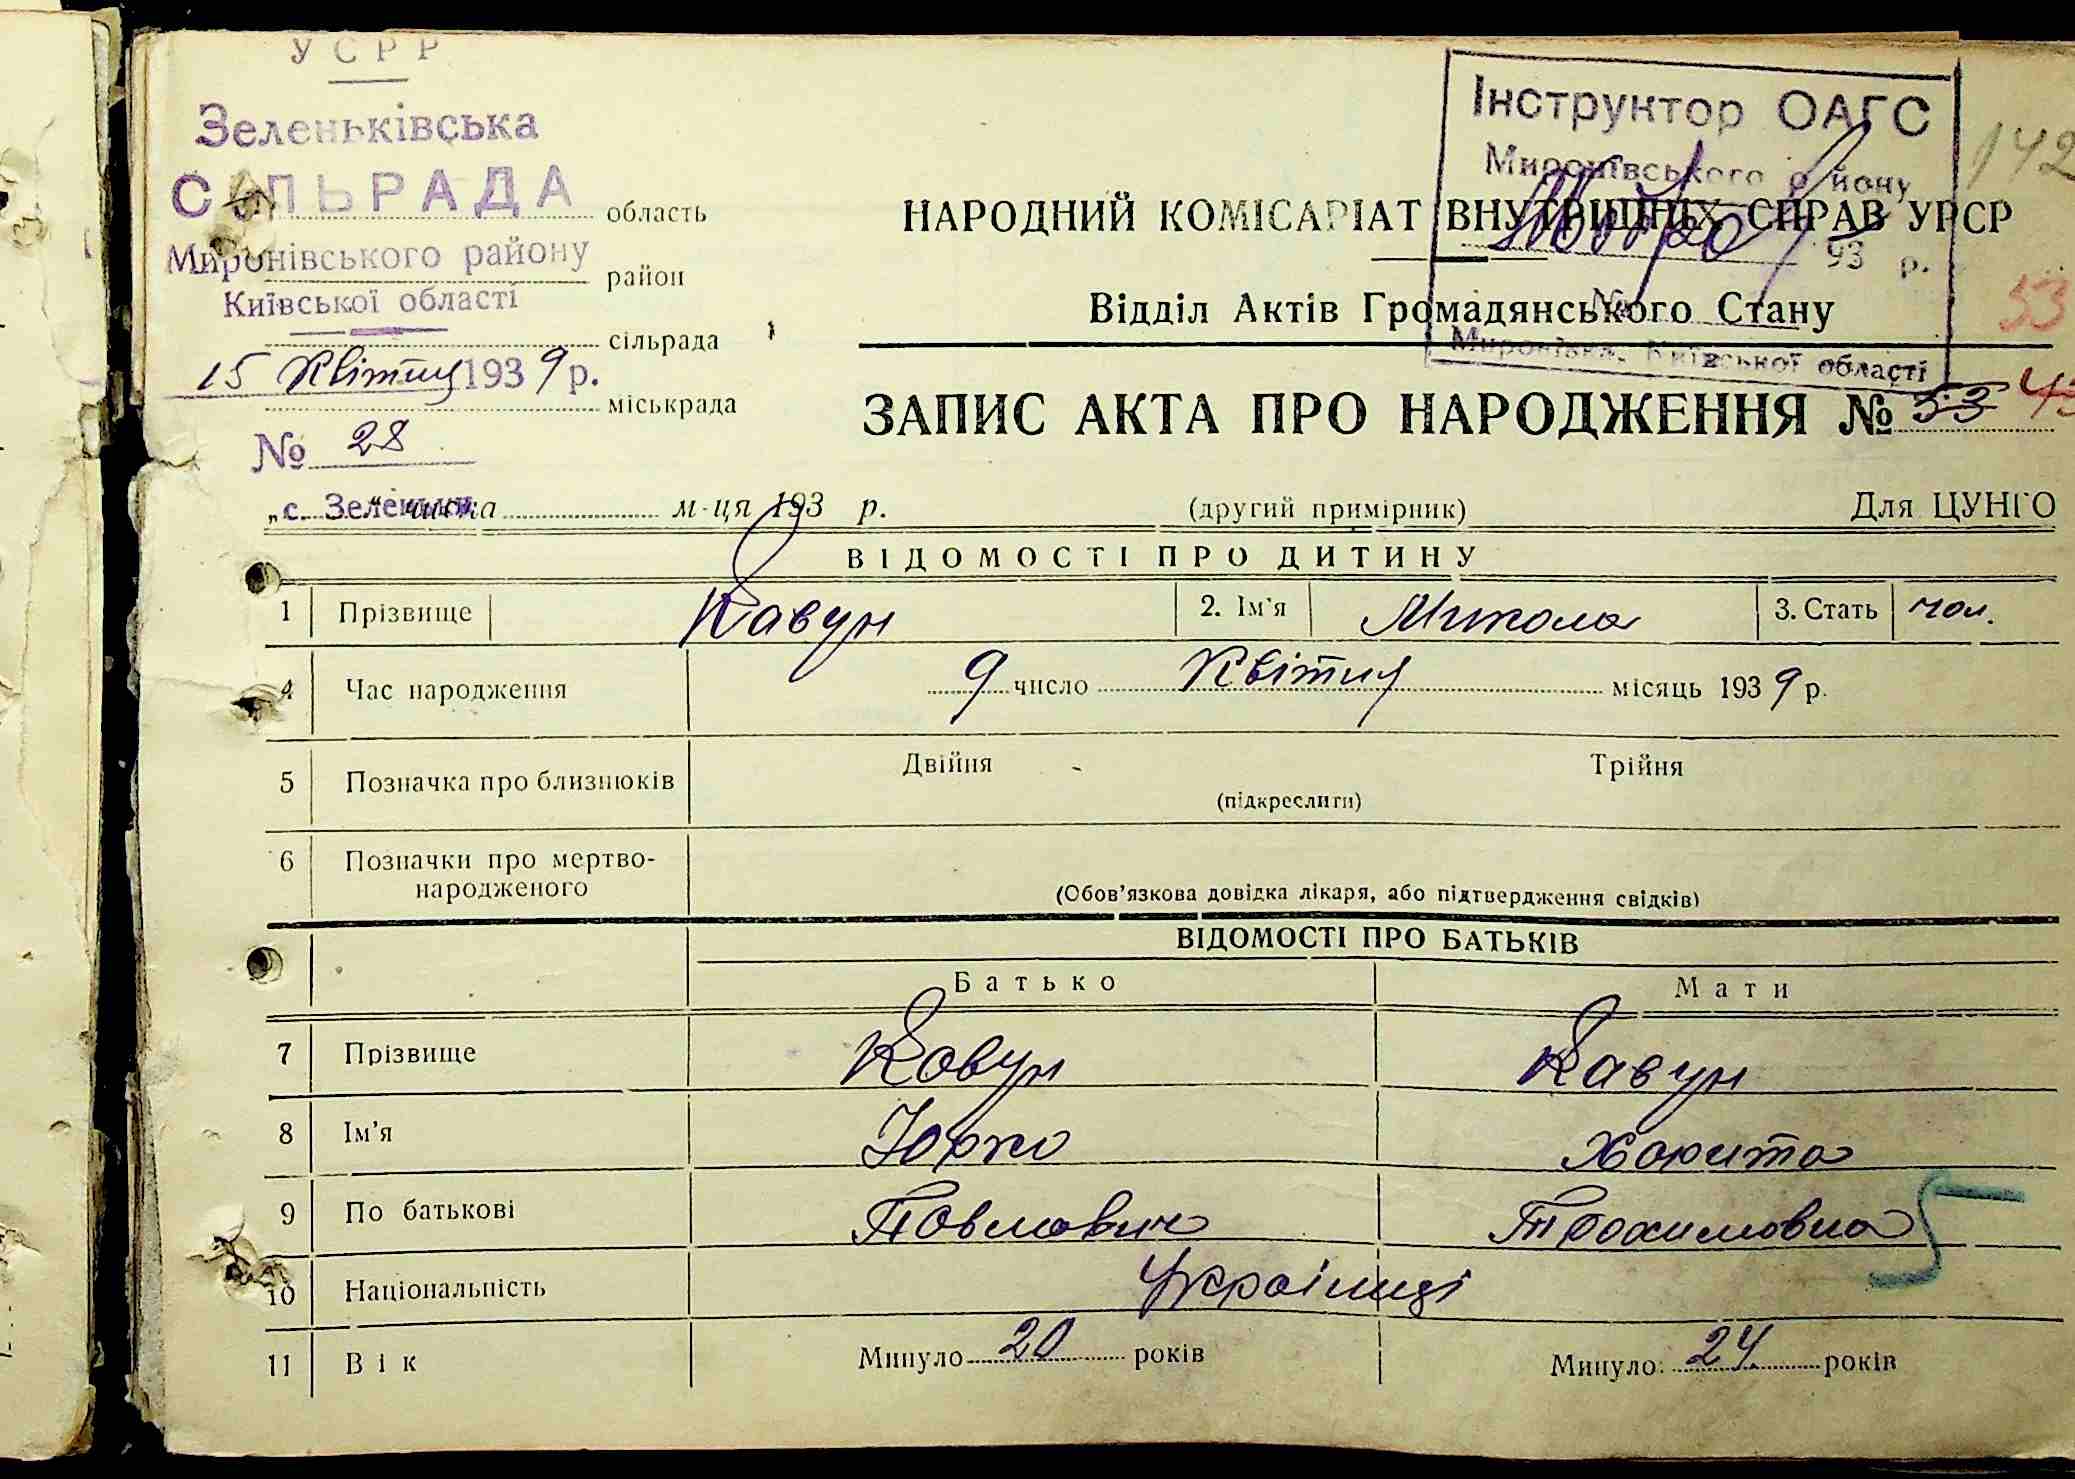 УСРР
Зеленьківська
СІЛЬРАДА область
Миронівського району район
Київської області
сільрада
15 Квітня 1939 р.
міськрада
№ 28
с. Зеленьки
„ “ числа м-ця 193 р.
Інструктор ОАГС
Миронівського району
193 р.
№
Миронівка, Київської області
142
53
НАРОДНИЙ КОМІСАРІАТ ВНУТРІШНІХ СПРАВ УРСР
Відділ Актів Громадянського Стану
ЗАПИС АКТА ПРО НАРОДЖЕННЯ № 53
(другий примірник) Для ЦУНГО
ВІДОМОСТІ ПРО ДИТИНУ
1 Прізвище Кавун 2. Ім'я Микола 3. Стать чол.
4 Час народження 9 число Квітня місяць 1939 р.
5 Позначка про близнюків Двійня - Трійня
(підкреслити)
6 Позначки про мертво-
народженого
(Обов'язкова довідка лікаря, або підтвердження свідків)
ВІДОМОСТІ ПРО БАТЬКІВ
Батько Мати
7 Прізвище Кавун Кавун
8 Ім'я Юрко
9 По батькові Павлович Трохимовна
10 Національність Українці
11 Вік Минуло 20 років Минуло 24 років
5